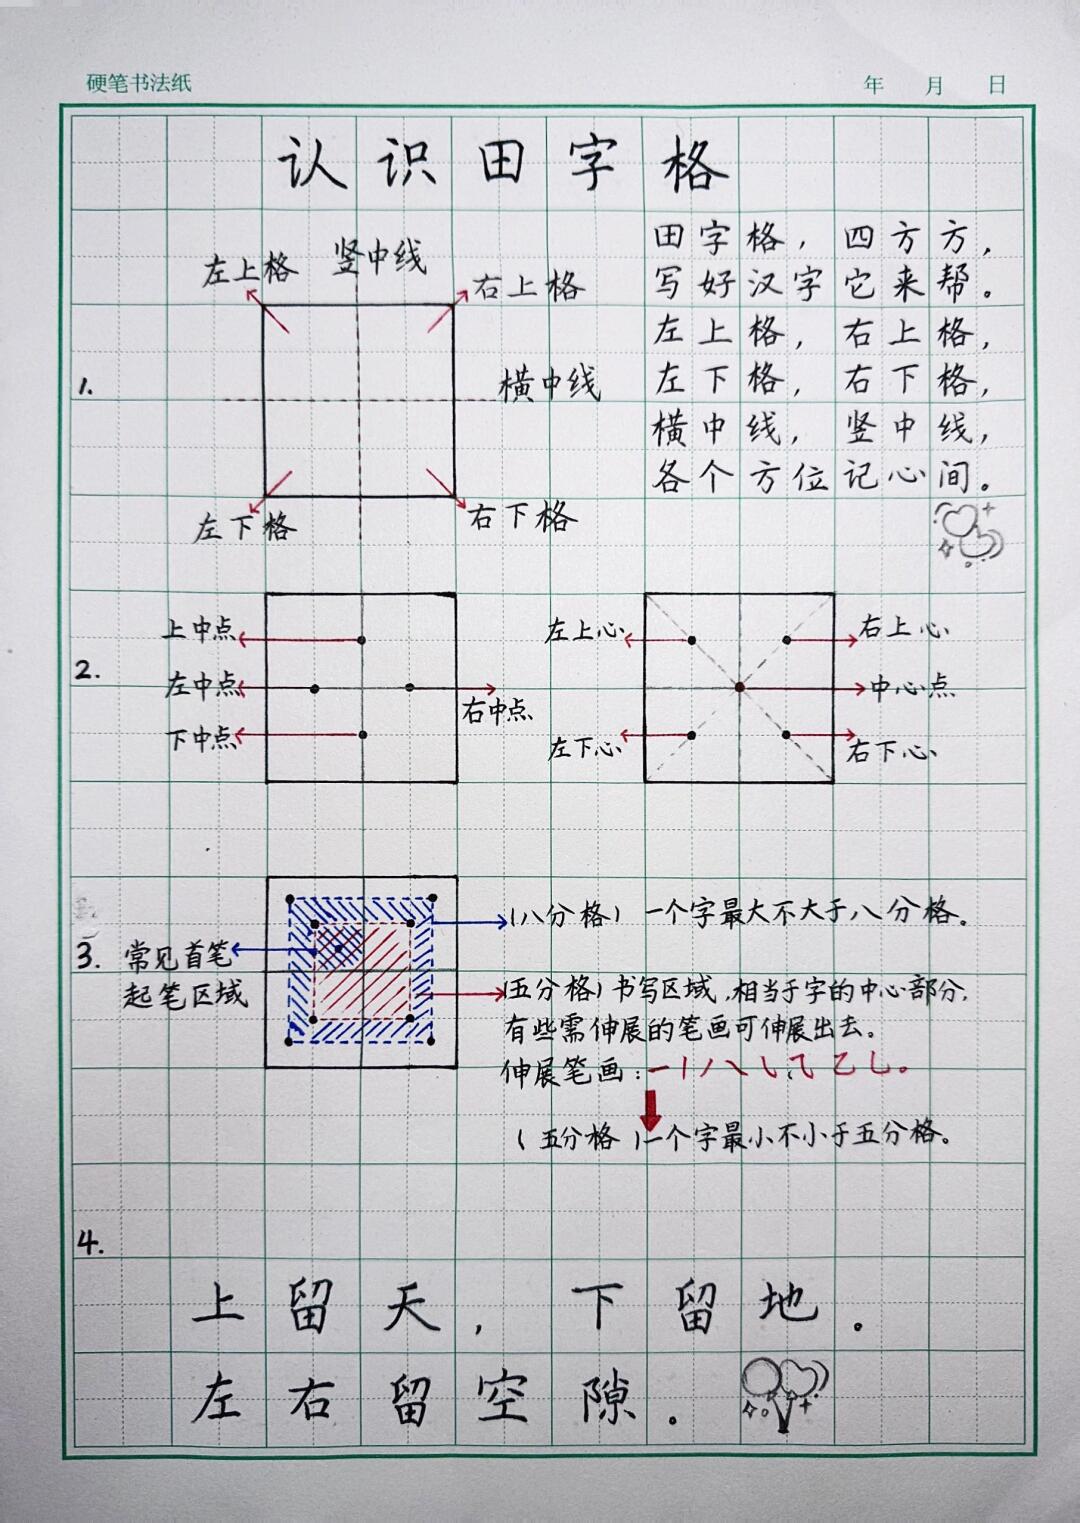 硬笔书法纸 年 月 日
认识田字格
左上格 竖中线 右上格
1.
横中线
左下格 右下格
田字格，四方方，
写好汉字它来帮。
左上格，右上格，
左下格，右下格，
横中线，竖中线，
各个方位记心间。
2.
上中点
左中点
下中点
右中点
左上心
右上心
中心点
左下心
右下心
3.
常见首笔
起笔区域
(八分格) 一个字最大不大于八分格。
(五分格) 书写区域,相当于字的中心部分,
有些需伸展的笔画可伸展出去。
伸展笔画:
(五分格)一个字最小不小于五分格。
4.
上留天，下留地。
左右留空隙。